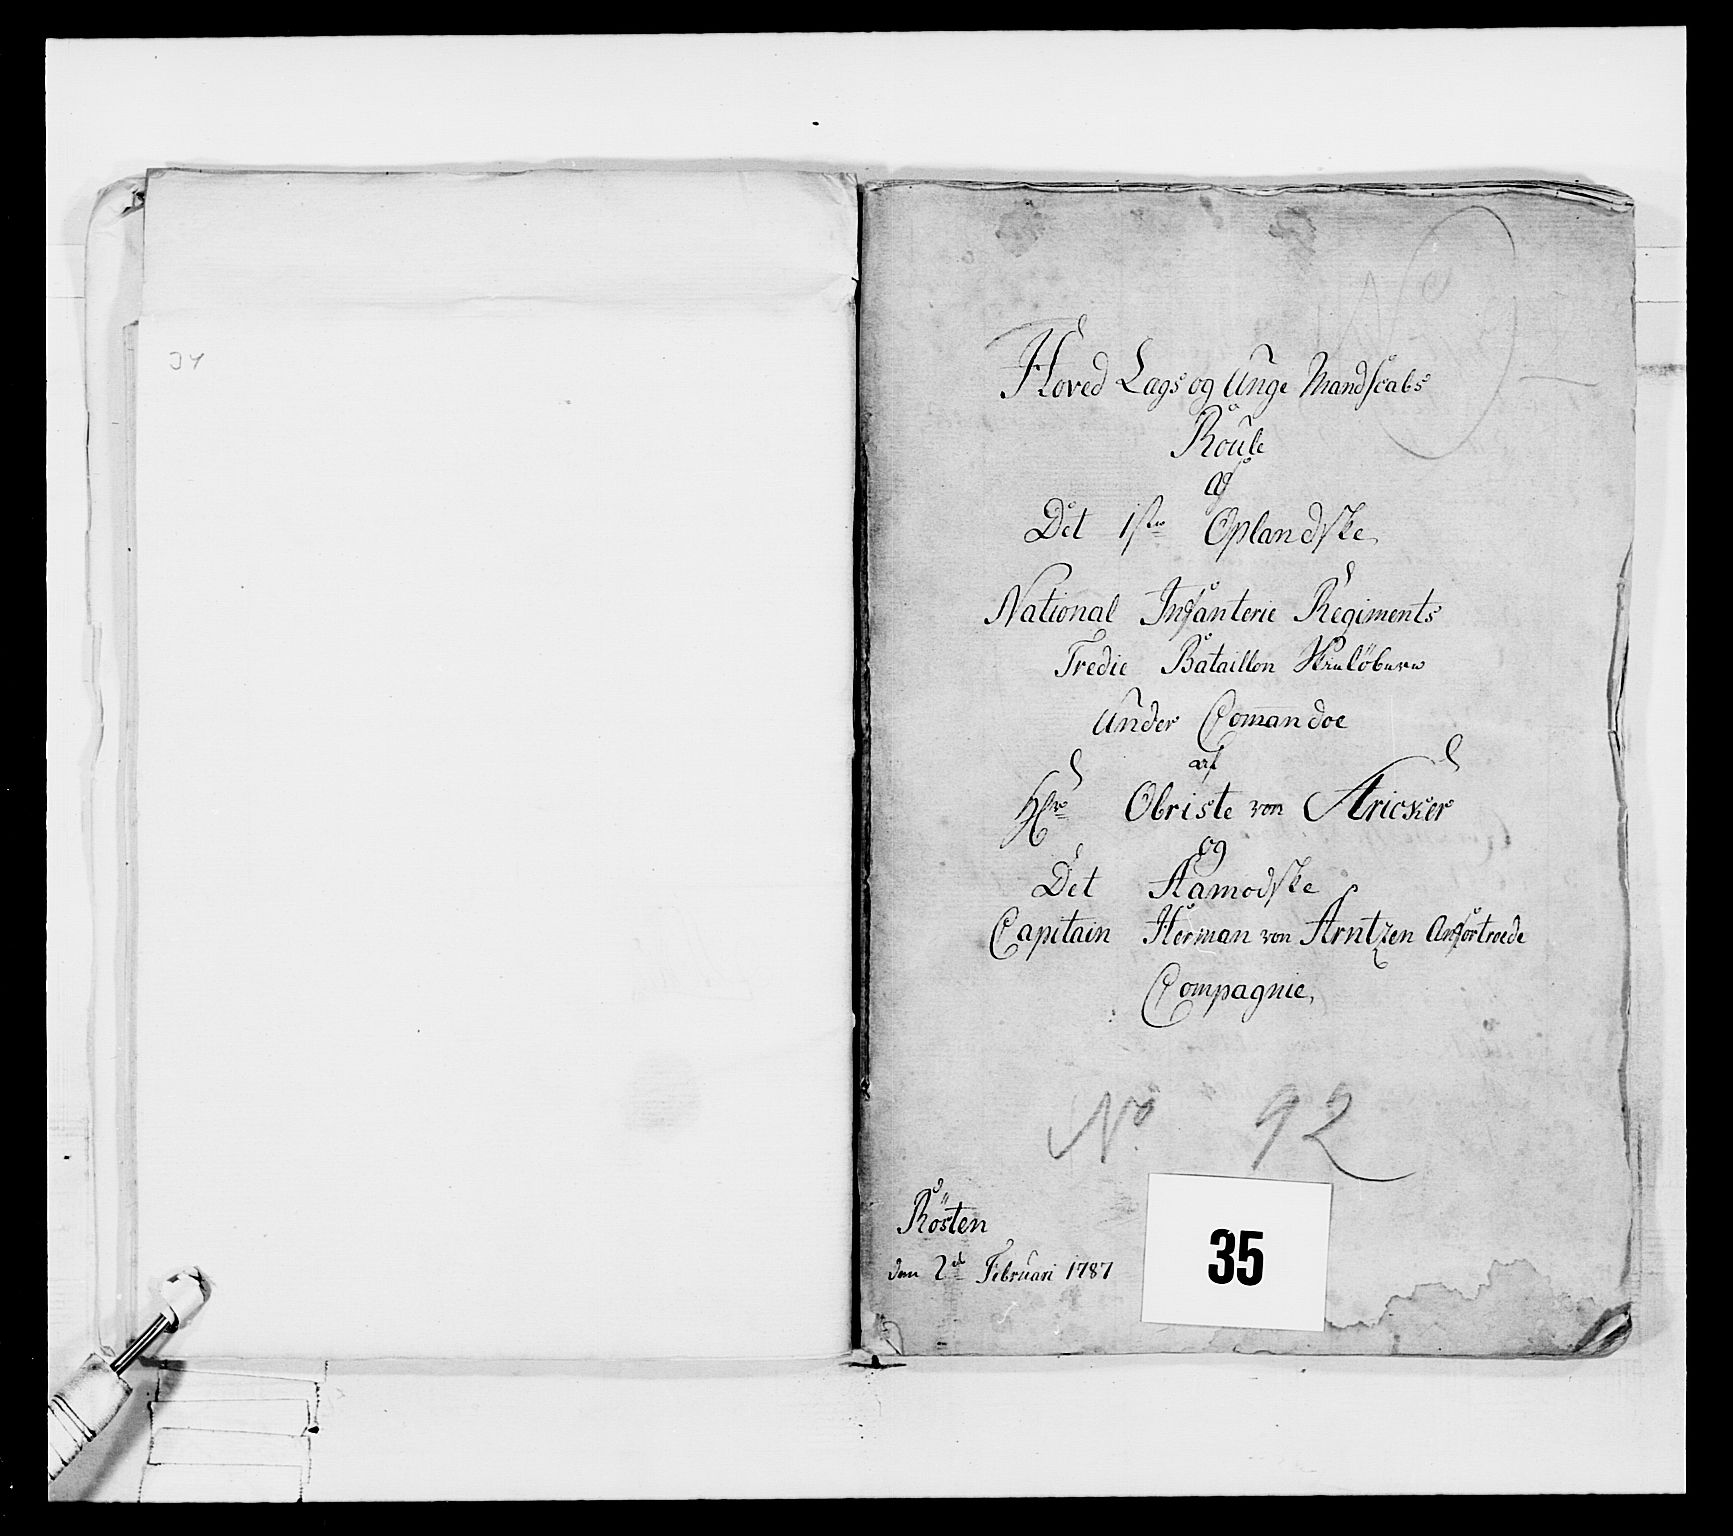 34
Hoved Lags og Unge Mandscabs
Roule
af
Det 1ste Oplandske
National Infanterie Regiments
Tredie Bataillon Skielöbere
Under Comandoe
af
Hr Obriste von Stricker
og
Det Aamodske
Capitain Herman von Arntzen Anfortroede
Compagnie,
No 92
Rösten
den 2d Februari 1787
35